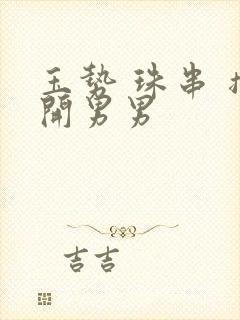 玉势 珠串
開男男
吉吉